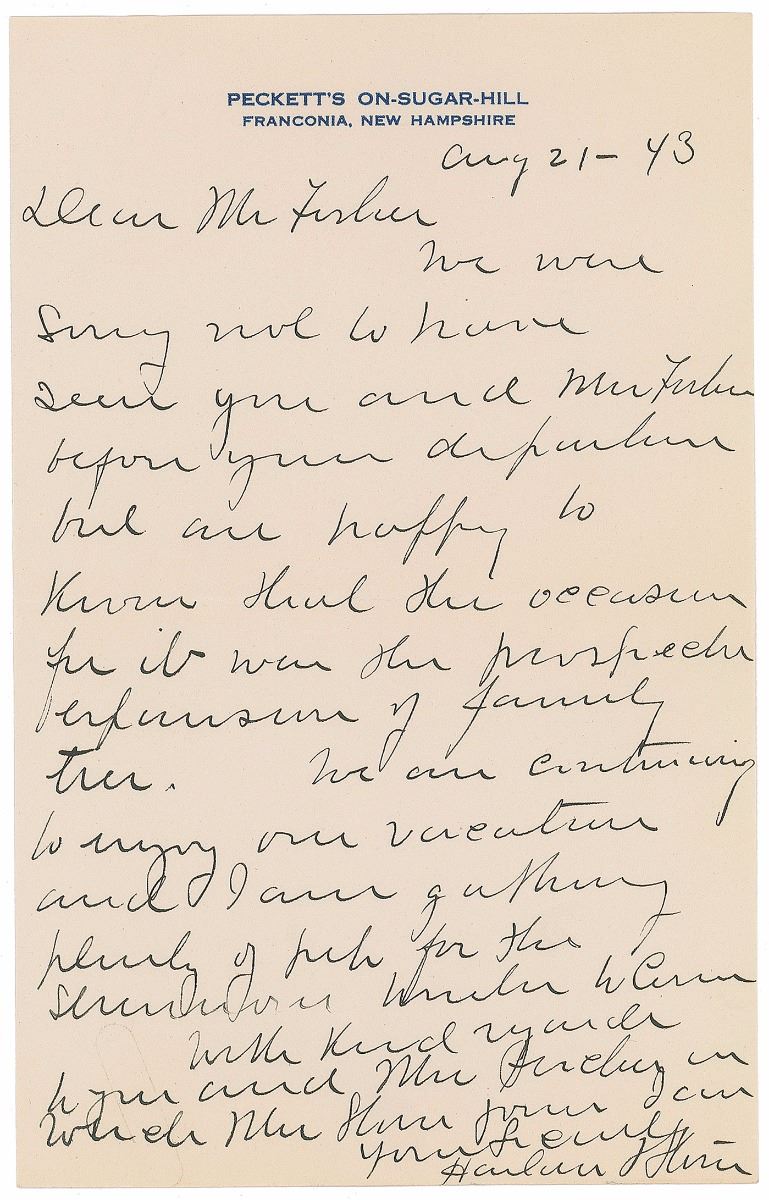 PECKETT'S ON-SUGAR-HILL
FRANCONIA, NEW HAMPSHIRE
Aug 21 - 43
Dear Mr Fisher
We were
sorry not to have
seen you and Mrs Fisher
before your departure
but are happy to
know that the occasion
for it was the prospective
expansion of family
tree. We are continuing
to enjoy our vacation
and I am gathering
plenty of pep for the
winter to come
With kind regards
to you and Mrs in
which Mrs Stone joins I am
Yours sincerely
Harlan F Stone